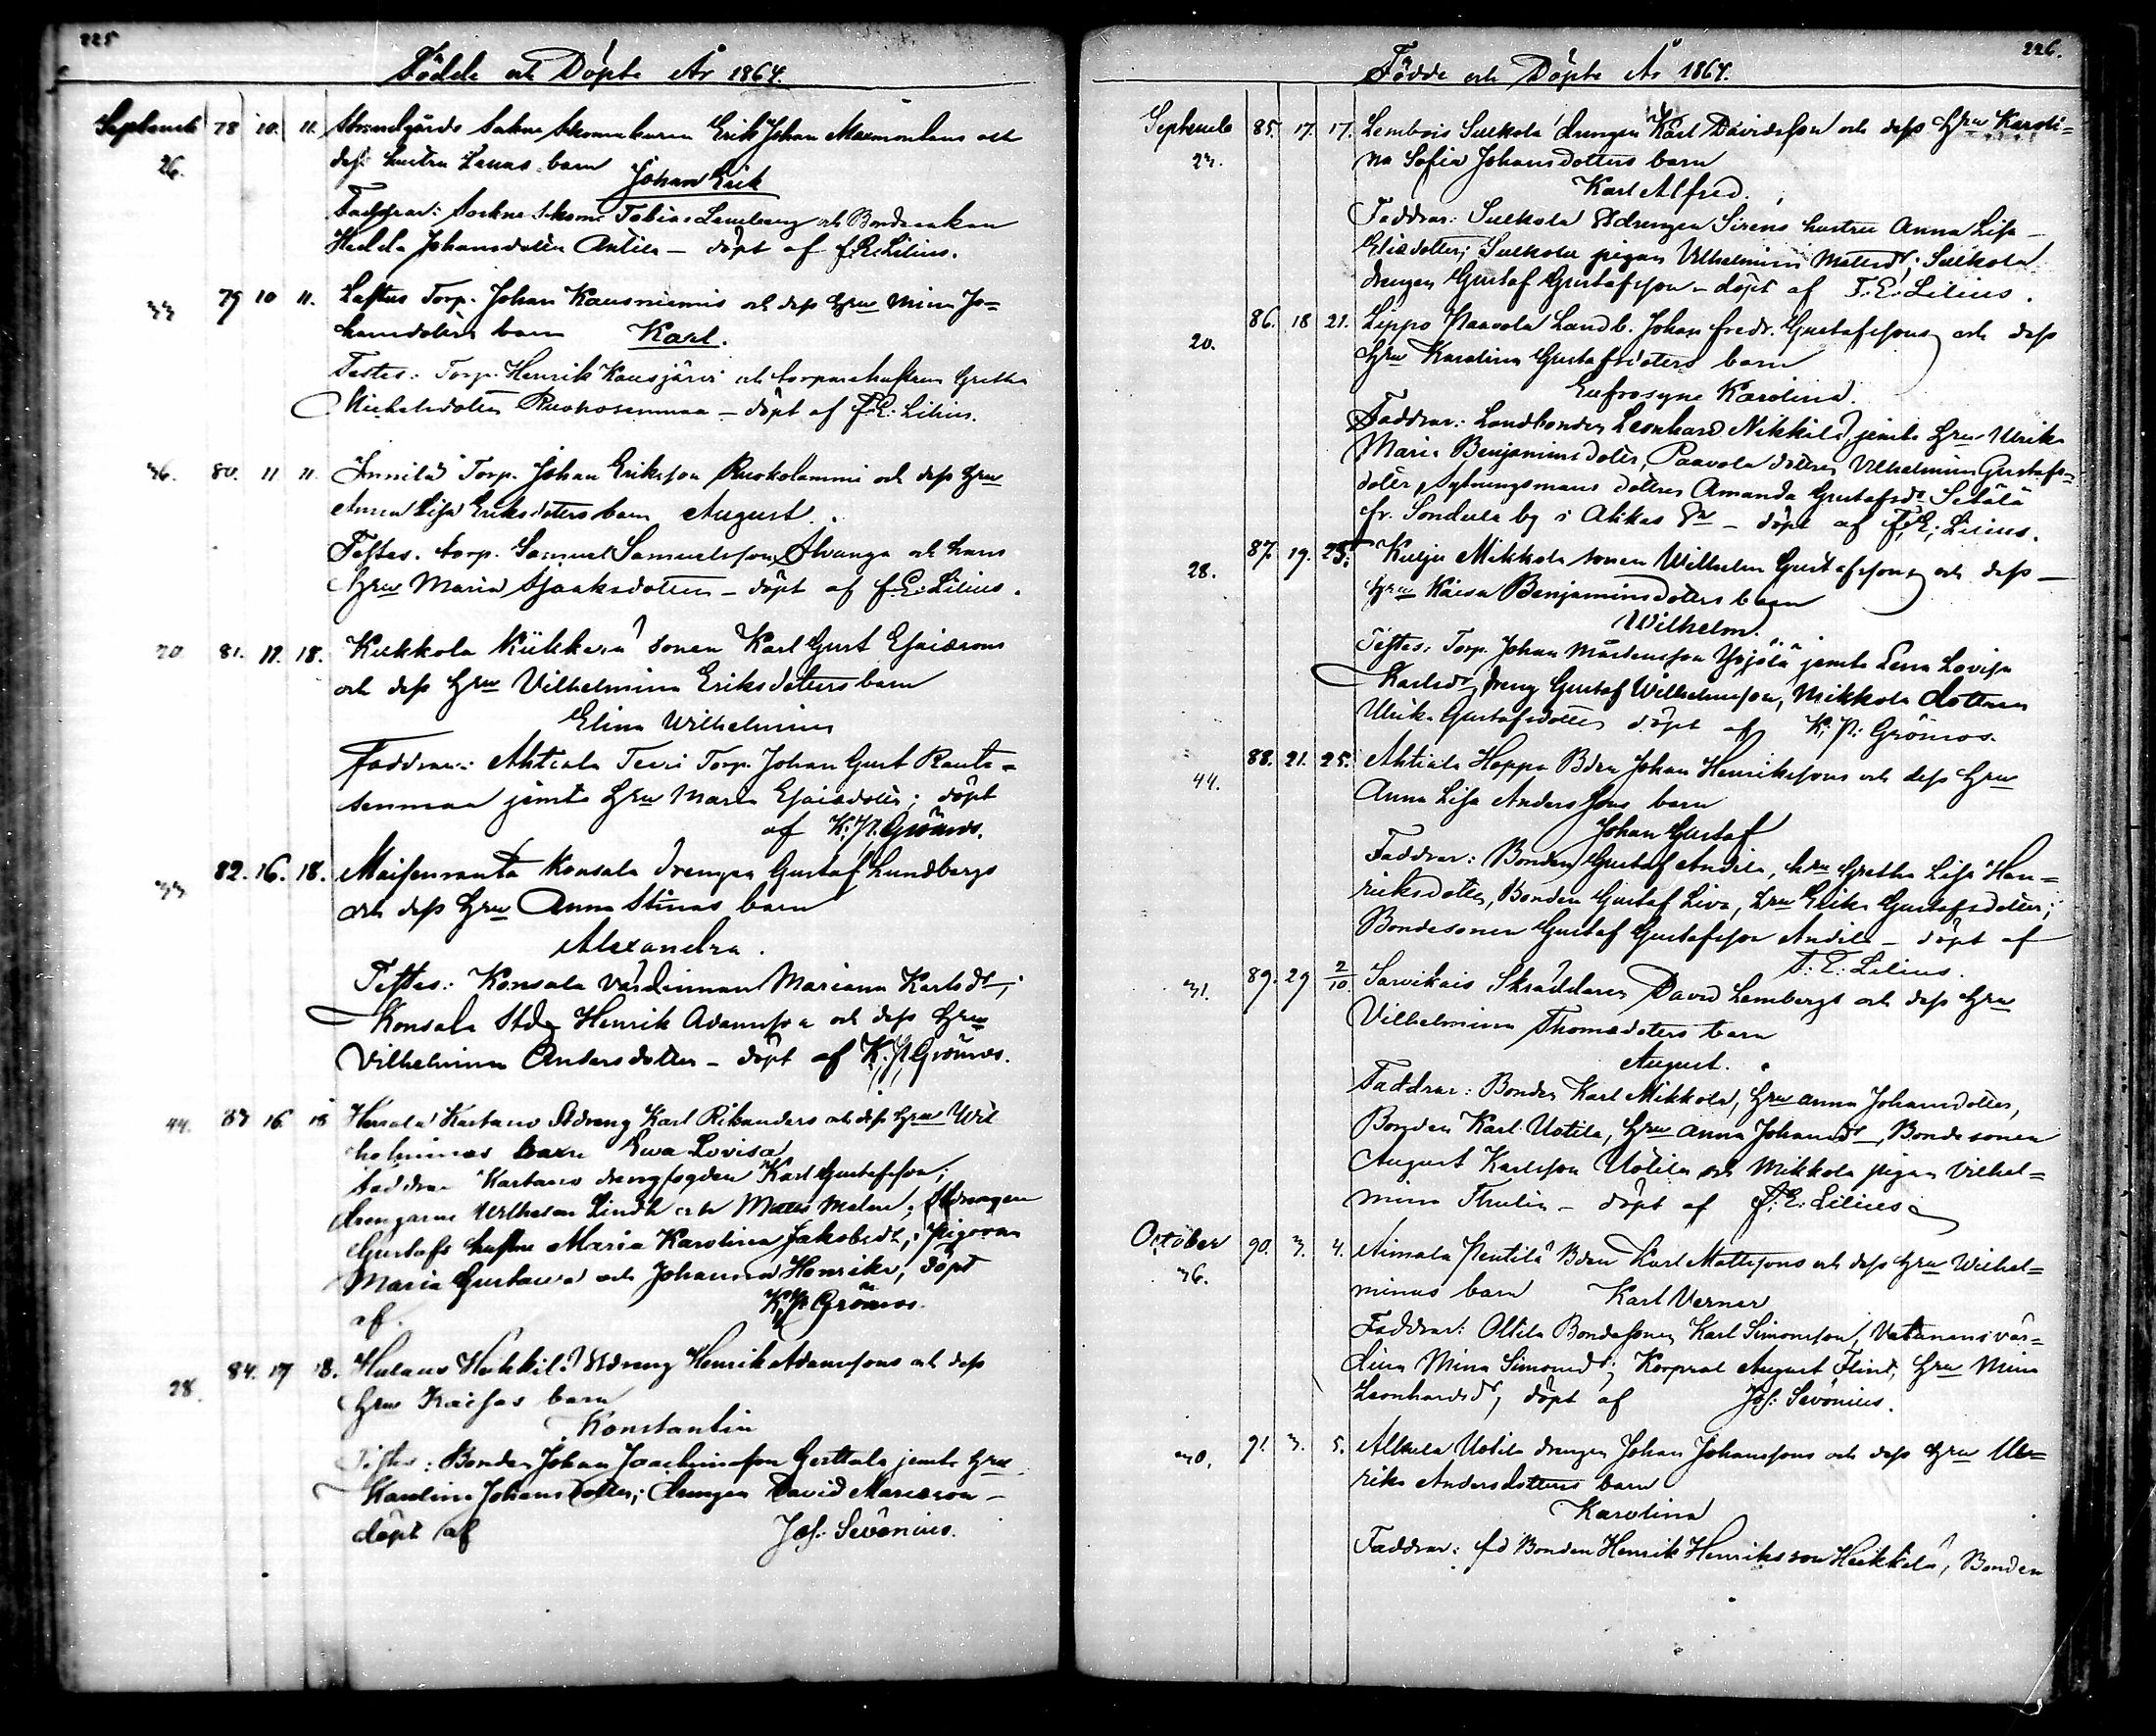 225
Födde och Döpte År 1864.
September 78 10. 11. Strandgårds Sokne skomakaren Erik Johan och
26. dess hustru Lenas barn Johan Erik
Faddrar: Sockne skom. Tobias och Bondeenkan
Hedda Johansdotter Antila – döpt af F. E. Lilius.
33 79 10 11. Torp. Johan Kausniemis och dess Hru Mina Jo=
hansdotters barn Karl.
Testes: Torp. Henrik Kausjärvi och torparehustrun Gretha
Michelsdotter – döpt af F. E. Lilius.
36. 80. 11 11. Innilä Torp. Johan Eriksson Ruokolammi och dess Hru
Anna Lisa Eriksdotters barn August.
Testes. torp. Samuel Samuelsson och hans
Hru Maria Isaaksdotter – döpt af F. E. Lilius.
20 81. 12. 18. Kukkola sonen Karl Gust Esaiasons
och dess Hru Vilhelmina Eriksdotters barn
Elina Wilhelmina
Faddrar: Ahtiala Teiri Torp. Johan Gust Rauta=
senmaa jemte Hru Maria Esaiadotter; döpt
af K. P. Grönros.
33 82. 16. 18. Konsala drengen Gustaf Lundbergs
och dess Hru Anna Stinas barn
Alexandra.
Testes: Konsala värdinnan Mariana Karlsdr,
Konsala Std Henrik Adamsson och dess Hru
Vilhelmina Andersdotter – döpt af K. P. Grönros.
44. 83 16 18 Kartano Stdreng Karl Rikanders och dess Hru Wil
helminas barn Ewa Lovisa
Faddrar Kartano drengfogden Karl Gustafsson;
drengarne Wilhelm Lindh och Matts Malm, Stdrengen
Gustafs hustru Maria Karolina Jakobsdr, Pigorna
Maria Gustava och Johanna Henrika, döpt
af. K. P. Grönros.
28. 84. 17 18. Heikkilä Stdreng Henrik Adamssons och dess
Hru Kaisas barn
Konstantin
Testes: Bonden Johan Joachimsson Gerttala jemte Hru
Karolina Johansdotter; drengen David –
döpt af Jos: Sevonius.
226.
Födde och Döpte År 1864.
September 85. 17. 17. Lembois Sulkola drengen Karl Davidsson och dess Hru Karoli=
23. na Sofia Johansdotters barn
Karl Alfred.
Faddrar: Sulkola Stdrengen Sirens hustru Anna Lisa –
Eliædotter; Sulkola pigan Vilhelmina Mattsdr; Sulkola
drengen Gustaf Gustafsson – döpt af F. E. Lilius.
20. 86. 18 21. Lippo Paavola Landb. Johan Fredr. Gustafssons och dess
Hru Karolina Gustafsdotters barn
Eufrosyne Karolina.
Faddrar: Landbonden Leonhard Nikkilä, jemte Hru Ulrika
Maria Benjaminsdoter, Paavola dottren Vilhelmina Gustafs=
doter, Sytningsmans dottren Amanda Gustafsdr Setälä
fr. Sondula by i Akkas Sn – döpt af F. E. Lilius.
28. 87. 19. 25. Kulju Mikkola sonen Wilhelm Gustafssons och dess –
Hru Kaisa Benjaminsdotters barn
Wilhelm.
Testes: Torp. Johan Mårtensson Yrjölä jemte Lena Lovisa
Karlsdr, dreng Gustaf Wilhelmsson, Mikkola dottren
Ulrika Gustafsdotter döpt af K. P. Grönros.
44. 88. 21. 25. Ahtiala Hoppo Bden Johan Henrikssons och dess Hru
Anna Lisa Anderssons barn
Johan Gustaf
Faddrar: Bonden Gustaf Andila, hru Gretha Lisa Hen=
riksdotter, Bonden Gustaf Liva, hru Erika Gustafsdotter;
Bondesonen Gustaf Gustafsson Andila – döpt af
F. E. Lilius.
31. 89. 29 2/10 Sarvikais Skräddaren David Lembergs och dess Hru
Vilhelmina Thomædoters barn
August.
Faddrar: Bonden Karl Mikkola, Hru Anna Johansdotter,
Bonden Karl Uotila, Hru Anna Johansdr, Bondesonen
August Karlsson Uotila och Mikkola pigan Vilhel=
mina Thulin – döpt af F. E. Lilius
October 90. 3. 4. Aimala Penttilä Bden Karl Mattssons och dess Hru Wilhel=
36. minas barn Karl Verner
Faddrar: Ollila Bondesonen Karl Simonsson, vär=
dinn Mina Simonsdr; Korpral August Flink, Hru Mina
Leonhardsdr, döpt af Jos: Sevonius.
30. 91. 3. 5. Alkula Uotila drengen Johan Johanssons och dess Hru Ul=
rika Andersdotters barn
Karolina
Faddrar: fd Bonden Henrik Henriksson Heikkilä, Bonden